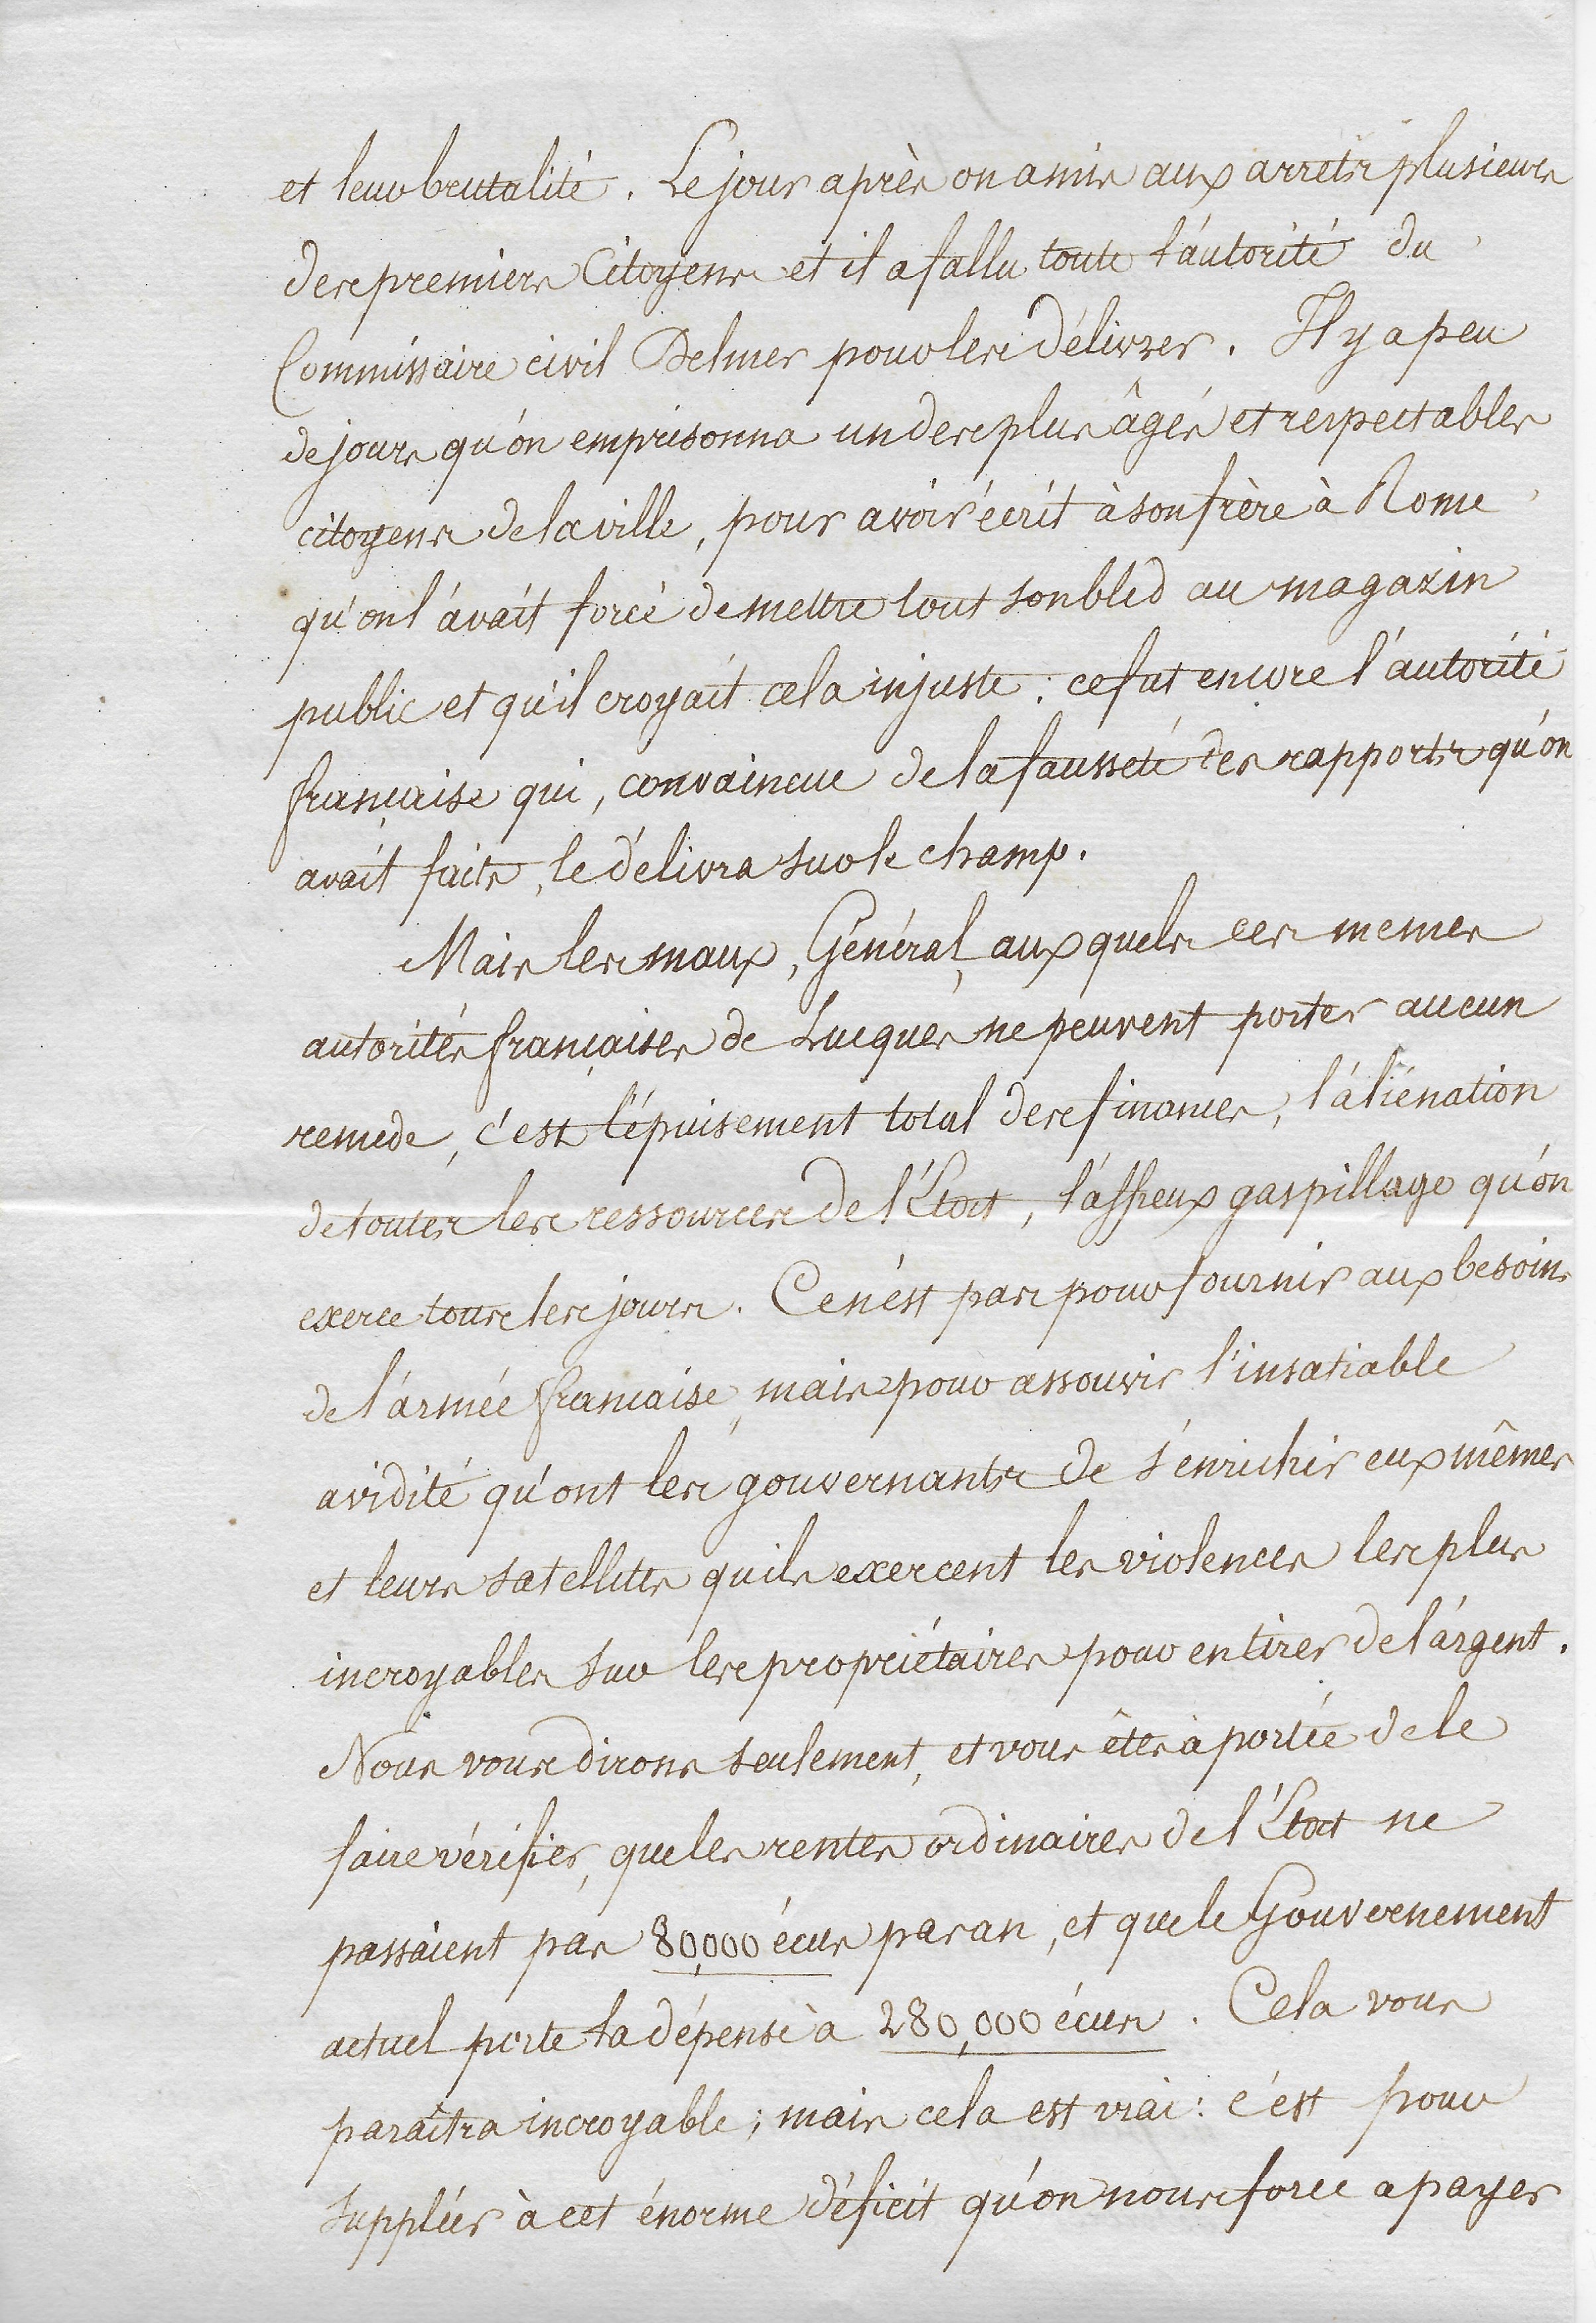 et leur brutalité. Le jour après on a mis aux arrets plusieurs
des premiers Citoyens et il a fallu toute l'autorité du
Commissaire civil Belmer pour les délivrer. Il y a peu
de jours qu'on emprisonna un des plus âgés et respectables
citoyens de la ville, pour avoir écrit à son frère à Rome
qu'on l'avait forcé de mettre tout son bled au magazin
public et qu'il croyait cela injuste: ce fut encore l'autorité
française qui, convaincue de la fausseté des rapports qu'on
avait faits, le délivra sur le champ.
Mais les maux, Général, aux quels ces memes
autorités françaises de Lucques ne peuvent porter aucun
remede, c'est l'épuisement total des finances, l'aliénation
de toutes les ressources de l'État, l'affreux gaspillage qu'on
exerce tous les jours. Ce n'est pas pour fournir aux besoins
de l'armée française, mais pour assouvir l'insatiable
avidité qu'ont les gouvernants de s'enrichir eux mêmes
et leurs satellites qu'ils exercent les violences les plus
incroyables sur les propriétaires pour en tirer de l'argent.
Nous vous dirons seulement, et vous êtes à portée de le
faire vérifier, que les rentes ordinaires de l'État ne
passaient pas 80,000 écus par an, et que le Gouvernement
actuel porte sa dépense à 280,000 écus. Cela vous
paraîtra incroyable; mais cela est vrai: c'est pour
suppléer à cet énorme déficit qu'on nous force a payer